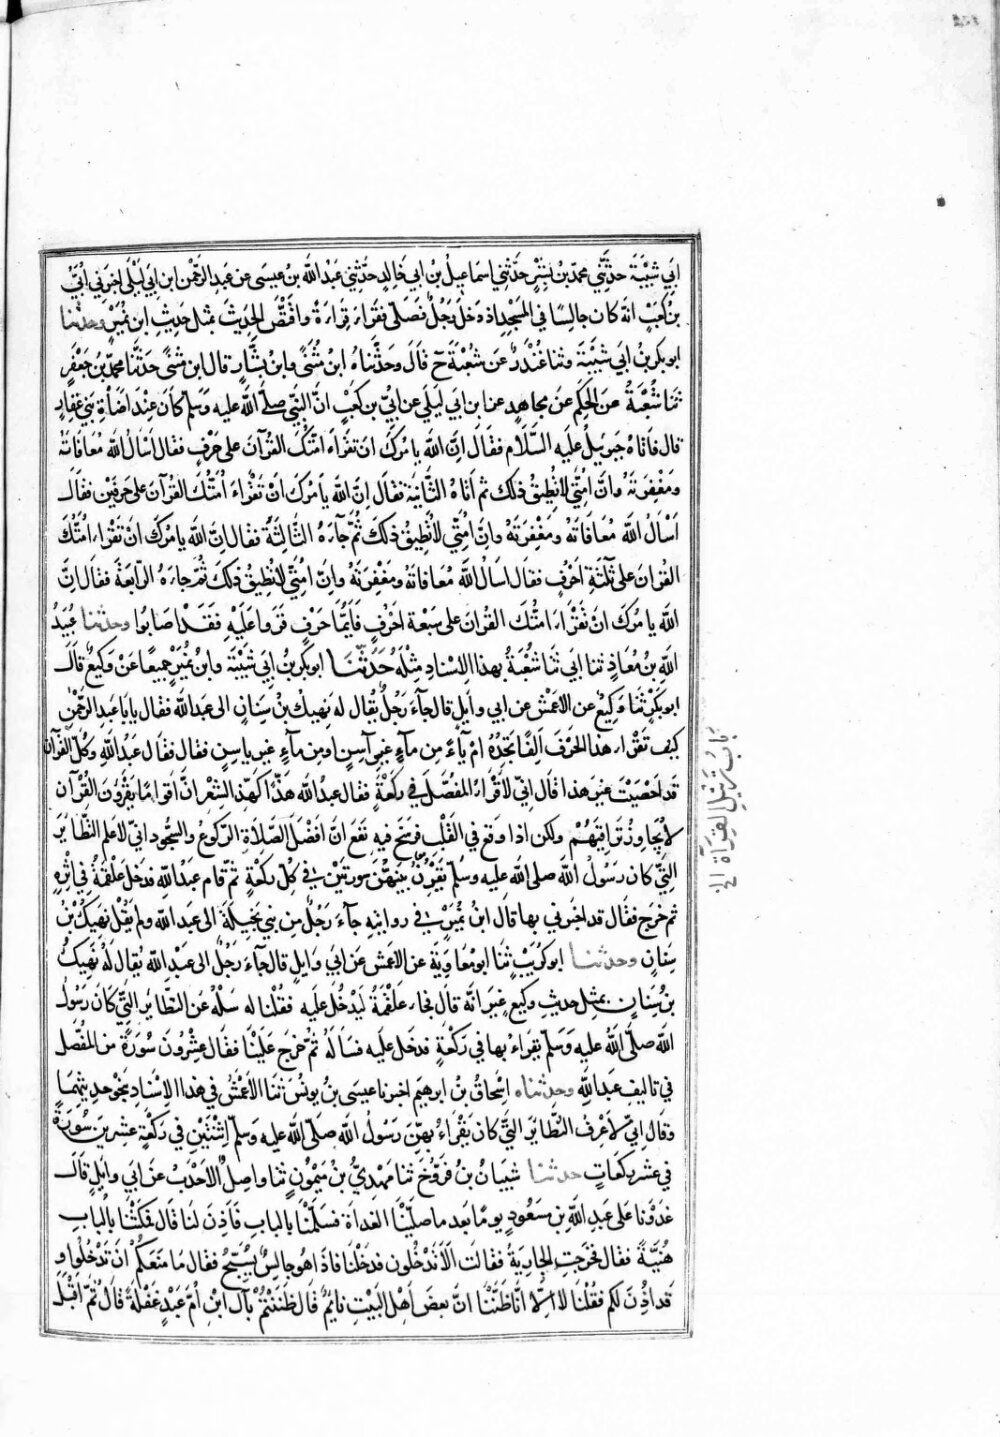 ابي شيبة حدثني محمد بن بشر حدثني اسماعيل بن ابي خالد حدثني عبد الله بن عيسى عن عبد الرحمن ابن ابي ليلى اخبرني ابيّ
بن كعب انه كان جالسا في المسجد اذ دخل رجل فصلى فقراء قراءة واقتصّ الحديث بمثل حديث ابن نمير وحدثنا
ابو بكر بن ابي شيبة وثنا غندر عن شعبة ح قال وحدثناه ابن مثنى وابن بشار قال ابن مثنى حدثنا محمد بن جعفر
ثنا شعبة عن الحكم عن مجاهد عن ابن ابي ليلى عن ابي بن كعب ان النبي صلى الله عليه وسلم كان عند اضاة بني غفار
قال فاتاه جبريل عليه السلام فقال ان الله يامرك ان تقراء امتك القرآن على حرف فقال اسال الله معافاته
ومغفرته وان امتي لا تطيق ذلك ثم اتاه الثانية فقال ان الله يامرك ان تقراء امتك القرآن على حرفين فقال
اسال الله معافاته ومغفرته وان امتي لا تطيق ذلك ثم جآءه الثالثة فقال ان الله يامرك ان تقراء امتك
القران على ثلثة احرف فقال اسال الله معافاته ومغفرته وان امتي لا تطيق ذلك ثم جاءه الرابعة فقال ان
الله يامرك ان تقراء امتك القران على سبعة احرف فايما حرف قروا عليه فقد اصابوا وحدثنا عبيد
الله بن معاذ ثنا ابي ثنا شعبة بهذا الاسناد مثله حدثنا ابو بكر بن ابي شيبة وابن نمير جميعا عن وكيع قال
ابو بكر ثنا وكيع عن الاعمش عن ابي وايل قال جآء رجل يقال له نهيك بن سنان الى عبد الله فقال يا با عبد الرحمن
كيف تقراء هذا الحرف الفا تجده ام يآء من مآء غير آسن او من مآء غير ياسن فقال فقال عبد الله وكل القرآن
قد احصيت غير هذا قال اني لاقراء المفصل في ركعة فقال عبد الله هذّا كهذ الشعر ان اقواما يقرؤن القرآن
لا يجاوز تراقيهم ولكن اذا وقع في القلب فرسخ فيه نفع ان افضل الصلاة الركوع والسجود اني لاعلم النظاير
التي كان رسول الله صلى الله عليه وسلم يقرن بينهن سورتين في كل ركعة ثم قام عبد الله فدخل علقمة في اثره
ثم خرج فقال قد اخبرني بها قال ابن نمير في روايته جآء رجل من بني بجيلة الى عبد الله ولم يقل نهيك بن
سنان وحدثنا ابو كريب ثنا ابو معاوية عن الاعمش عن ابي وايل قال جآء رجل الى عبد الله يقال له نهيك
بن سنان بمثل حديث وكيع غير انه قال فجاء علقمة ليدخل عليه فقلنا له سله عن النظاير التي كان رسول
الله صلى الله عليه وسلم يقراء بها في ركعة فدخل عليه فساله ثم خرج علينا فقال عشرون سورة من المفصل
في تاليف عبد الله وحدثناه اسحاق بن ابرهيم اخبرنا عيسى بن يونس ثنا الاعمش في هذا الاسناد بنحو حديثهما
وقال اني لاعرف النظاير التي كان يقراء بهن رسول الله صلى الله عليه وسلم اثنتين في ركعة عشرين سورة
في عشر ركعات حدثنا شيبان بن فروخ ثنا مهدي بن ميمون ثنا واصل الاحدب عن ابي وايل قال
غدونا على عبد الله بن مسعود يوما بعد ما صلينا الغداة فسلمنا بالباب فاذن لنا قال فمكثنا بالباب
هنيّة فقال فخرجت الجارية فقالت الا تدخلون فدخلنا فاذا هو جالس يسبح فقال ما منعكم ان تدخلوا و
قد اذن لكم فقلنا لا الا انا ظننا ان بعض اهل البيت نايم قال ظننتم بآل ابن ام عبد غفلة قال ثم اقبل
باب ترتيل القراة الخ